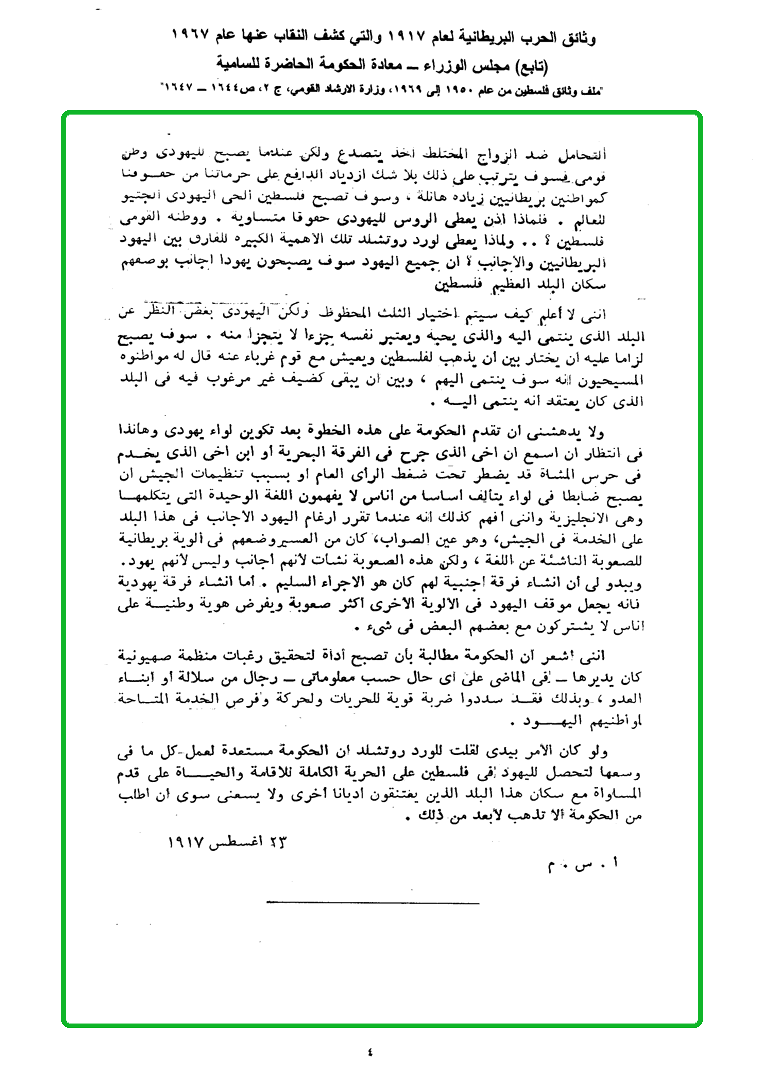 وثائق الحرب البريطانية لعام ١٩١٧ والتي كشف النقاب عنها عام ١٩٦٧
(تابع) مجلس الوزراء ــ معادة الحكومة الحاضرة للسامية
"ملف وثائق فلسطين من عام ١٩٥٠ إلى ١٩٦٩، وزارة الارشاد القومي، ج ٢، ص١٦٤٤ ــ ١٦٤٧"
التحامل ضد الزواج المختلط اخذ يتصدع ولكن عندما يصبح لليهودى وطن
قومى فسوف يترتب على ذلك بلا شك ازدياد الدافع على حرماتنا من حقوقنا
كمواطنين بريطانيين زياده هائلة ، وسوف تصبح فلسطين الحى اليهودى الجتيو
للعالم . فلماذا اذن يعطى الروس لليهودى حقوقا متساوية . ووطنه القومى
فلسطين ؟ .. ولماذا يعطى لورد روتشلد تلك الاهمية الكبيره للفارق بين اليهود
البريطانيين والاجانب ؟ ان جميع اليهود سوف يصبحون يهودا اجانب بوصفهم
سكان البلد العظيم فلسطين
اننى لا أعلم كيف سيتم اختيار الثلث المحظوظ ولكن اليهودى بغض النظر عن
البلد الذى ينتمى اليه والذى يحبه ويعتبر نفسه جزءا لا يتجزا منه . سوف يصبح
لزاما عليه ان يختار بين أن يذهب لفلسطين ويعيش مع قوم غرباء عنه قال له مواطنوه
المسيحيون انه سوف ينتمى اليهم ، وبين ان يبقى كضيف غير مرغوب فيه فى البلد
الذى كان يعتقد انه ينتمى اليـه .
ولا يدهشنى ان تقدم الحكومة على هذه الخطوة بعد تكوين لواء يهودى وهانذا
فى انتظار ان اسمع ان اخى الذى جرح فى الفرقة البحرية أو ابن اخى الذى يخـدم
فى حرس المشاة قد يضطر تحت ضغط الرأى العام او بسبب تنظيمات الجيش ان
يصبح ضابطا فى لواء يتألف اساسا من اناس لا يفهمون اللغة الوحيدة التى يتكلمهـا
وهى الانجليزية واننى أفهم كذلك انه عندما تقرر ارغام اليهود الاجانب فى هذا البلد
على الخدمة فى الجيش، وهو عين الصواب، كان من العسير وضعهم فى ألوية بريطانية
للصعوبة الناشئة عن اللغة ، ولكن هذه الصعوبة نشأت لأنهم أجانب وليس لأنهم يهود.
ويبدو لى أن انشاء فرقة اجنبية لهم كان هو الاجراء السليم . اما انشاء فرقة يهودية
فانه يجعل موقف اليهود فى الالوية الاخرى اكثر صعوبة ويفرض هوية وطنيـة على
اناس لا يشتركون مع بعضهم البعض فى شىء .
اننى أشعر ان الحكومة مطالبة بأن تصبح أداة لتحقيق رغبات منظمة صهيونية
كان يديرها ــ فى الماضى على أى حال حسب معلوماتى ــ رجال من سلالة أو ابنـاء
العدو ، وبذلك فقـد سددوا ضربة قوية للحريات ولحركة وفرص الخدمة المتـاحة
لمواطنيهم اليهـود .
ولو كان الأمر بيدى لقلت للورد روتشلد ان الحكومة مستعدة لعمل كل ما فى
وسعها لتحصل لليهود فى فلسطين على الحرية الكاملة للاقامة والحيـاة على قدم
المساواة مع سكان هذا البلد الذين يعتنقون أديانا أخرى ولا يسعنى سوى ان اطلب
من الحكومة ألا تذهب لأبعد من ذلك .
٢٣ اغسطس ١٩١٧
أ . س . م
٤